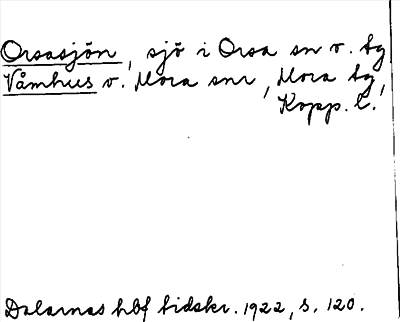 Orsasjön, sjö i Orsa sn o. tg
Våmhus o. Mora snr, Mora tg,
Kopp. l.
Dalarnas hbf tidskr. 1922, s. 120.